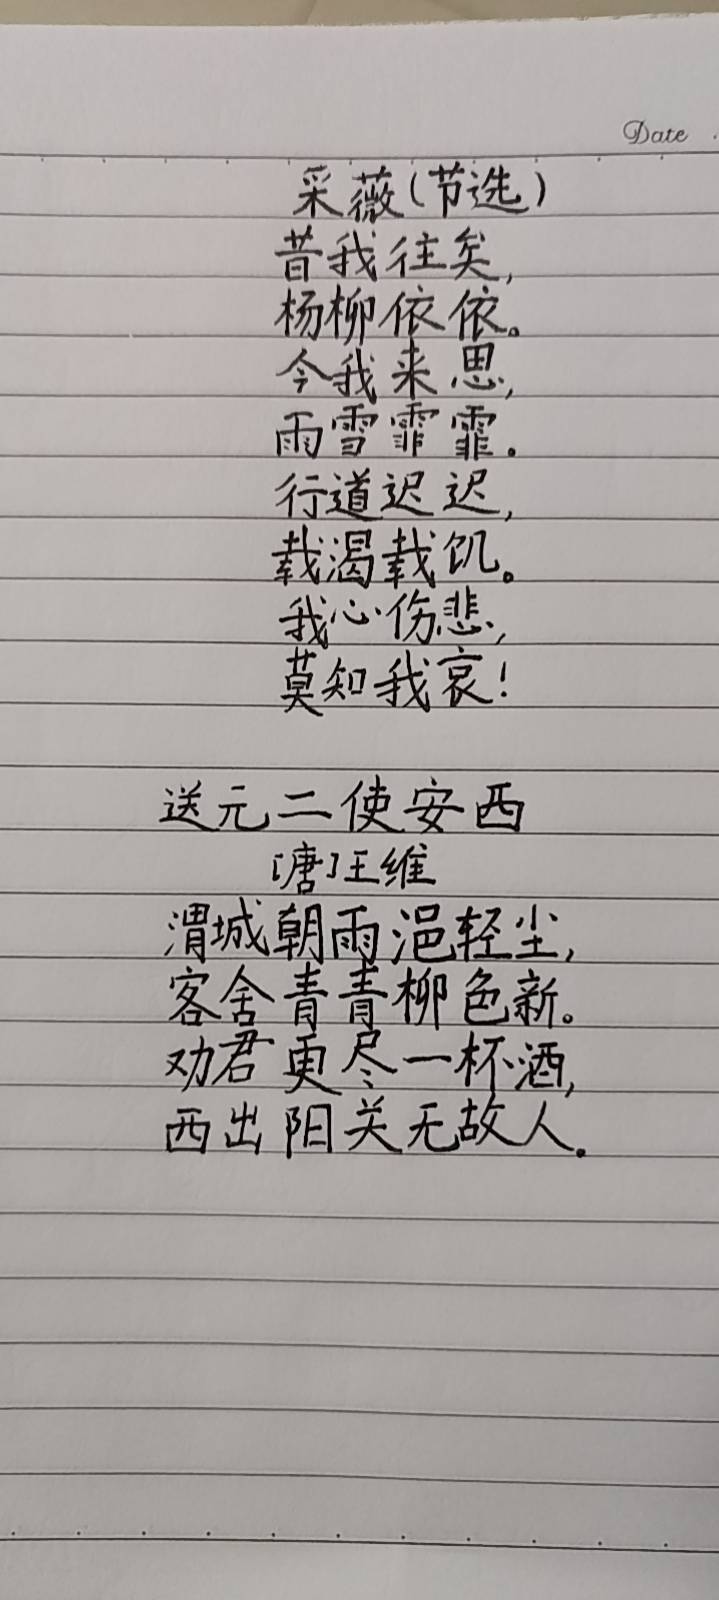 Date
采薇(节选)
昔我往矣,
杨柳依依。
今我来思,
雨雪霏霏.
行道迟迟,
载渴载饥。
我心伤悲,
莫知我哀!
送元二使安西
[唐]王维
渭城朝雨浥轻尘,
客舍青青柳色新。
劝君更尽一杯酒,
西出阳关无故人。